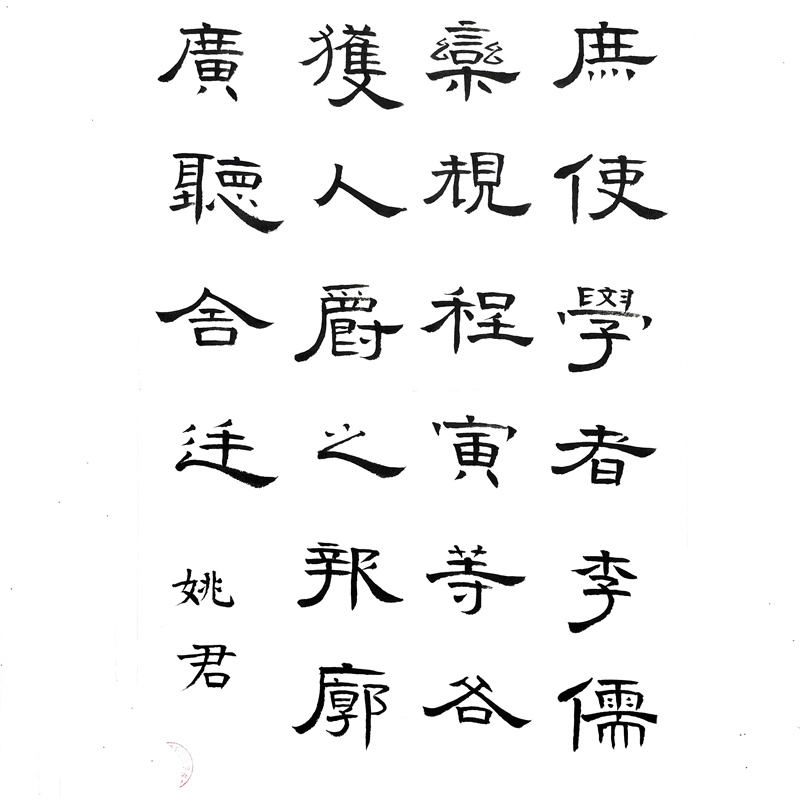 庶使學者李儒
欒規程寅等各
獲人爵之報廓
廣聽舍廷 姚君